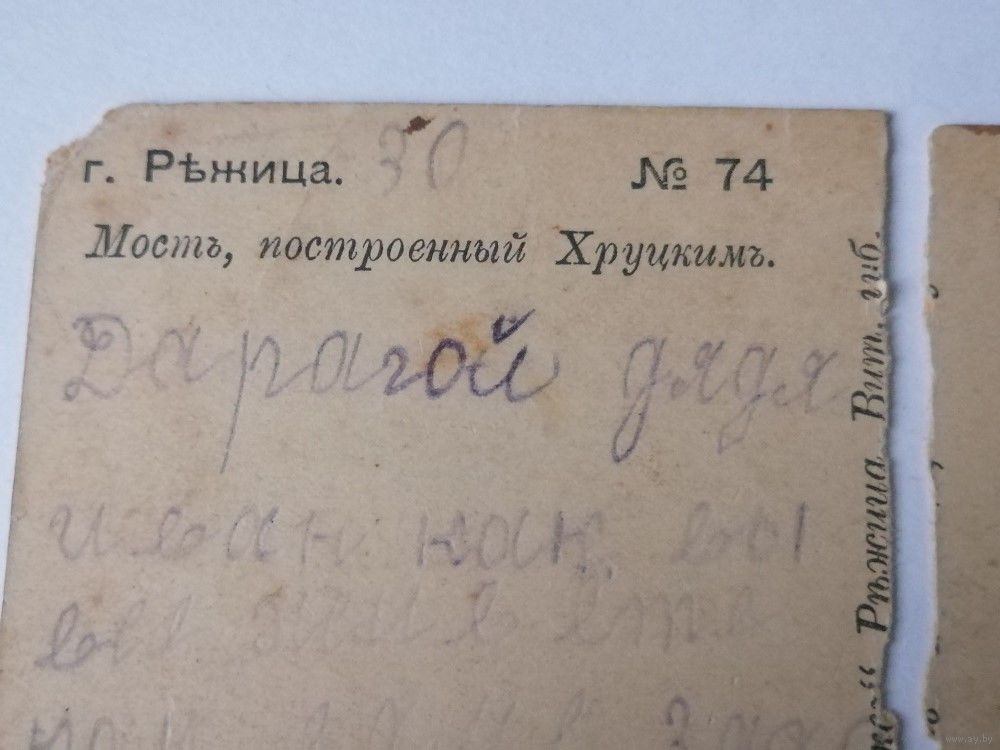 г. Рѣжица. 30 № 74
Мостъ, построенный Хруцкимъ.
Дарагой дядя
иван как вы
вы живете
как ваше
Рѣжица Вит. губ.
www.ay.by